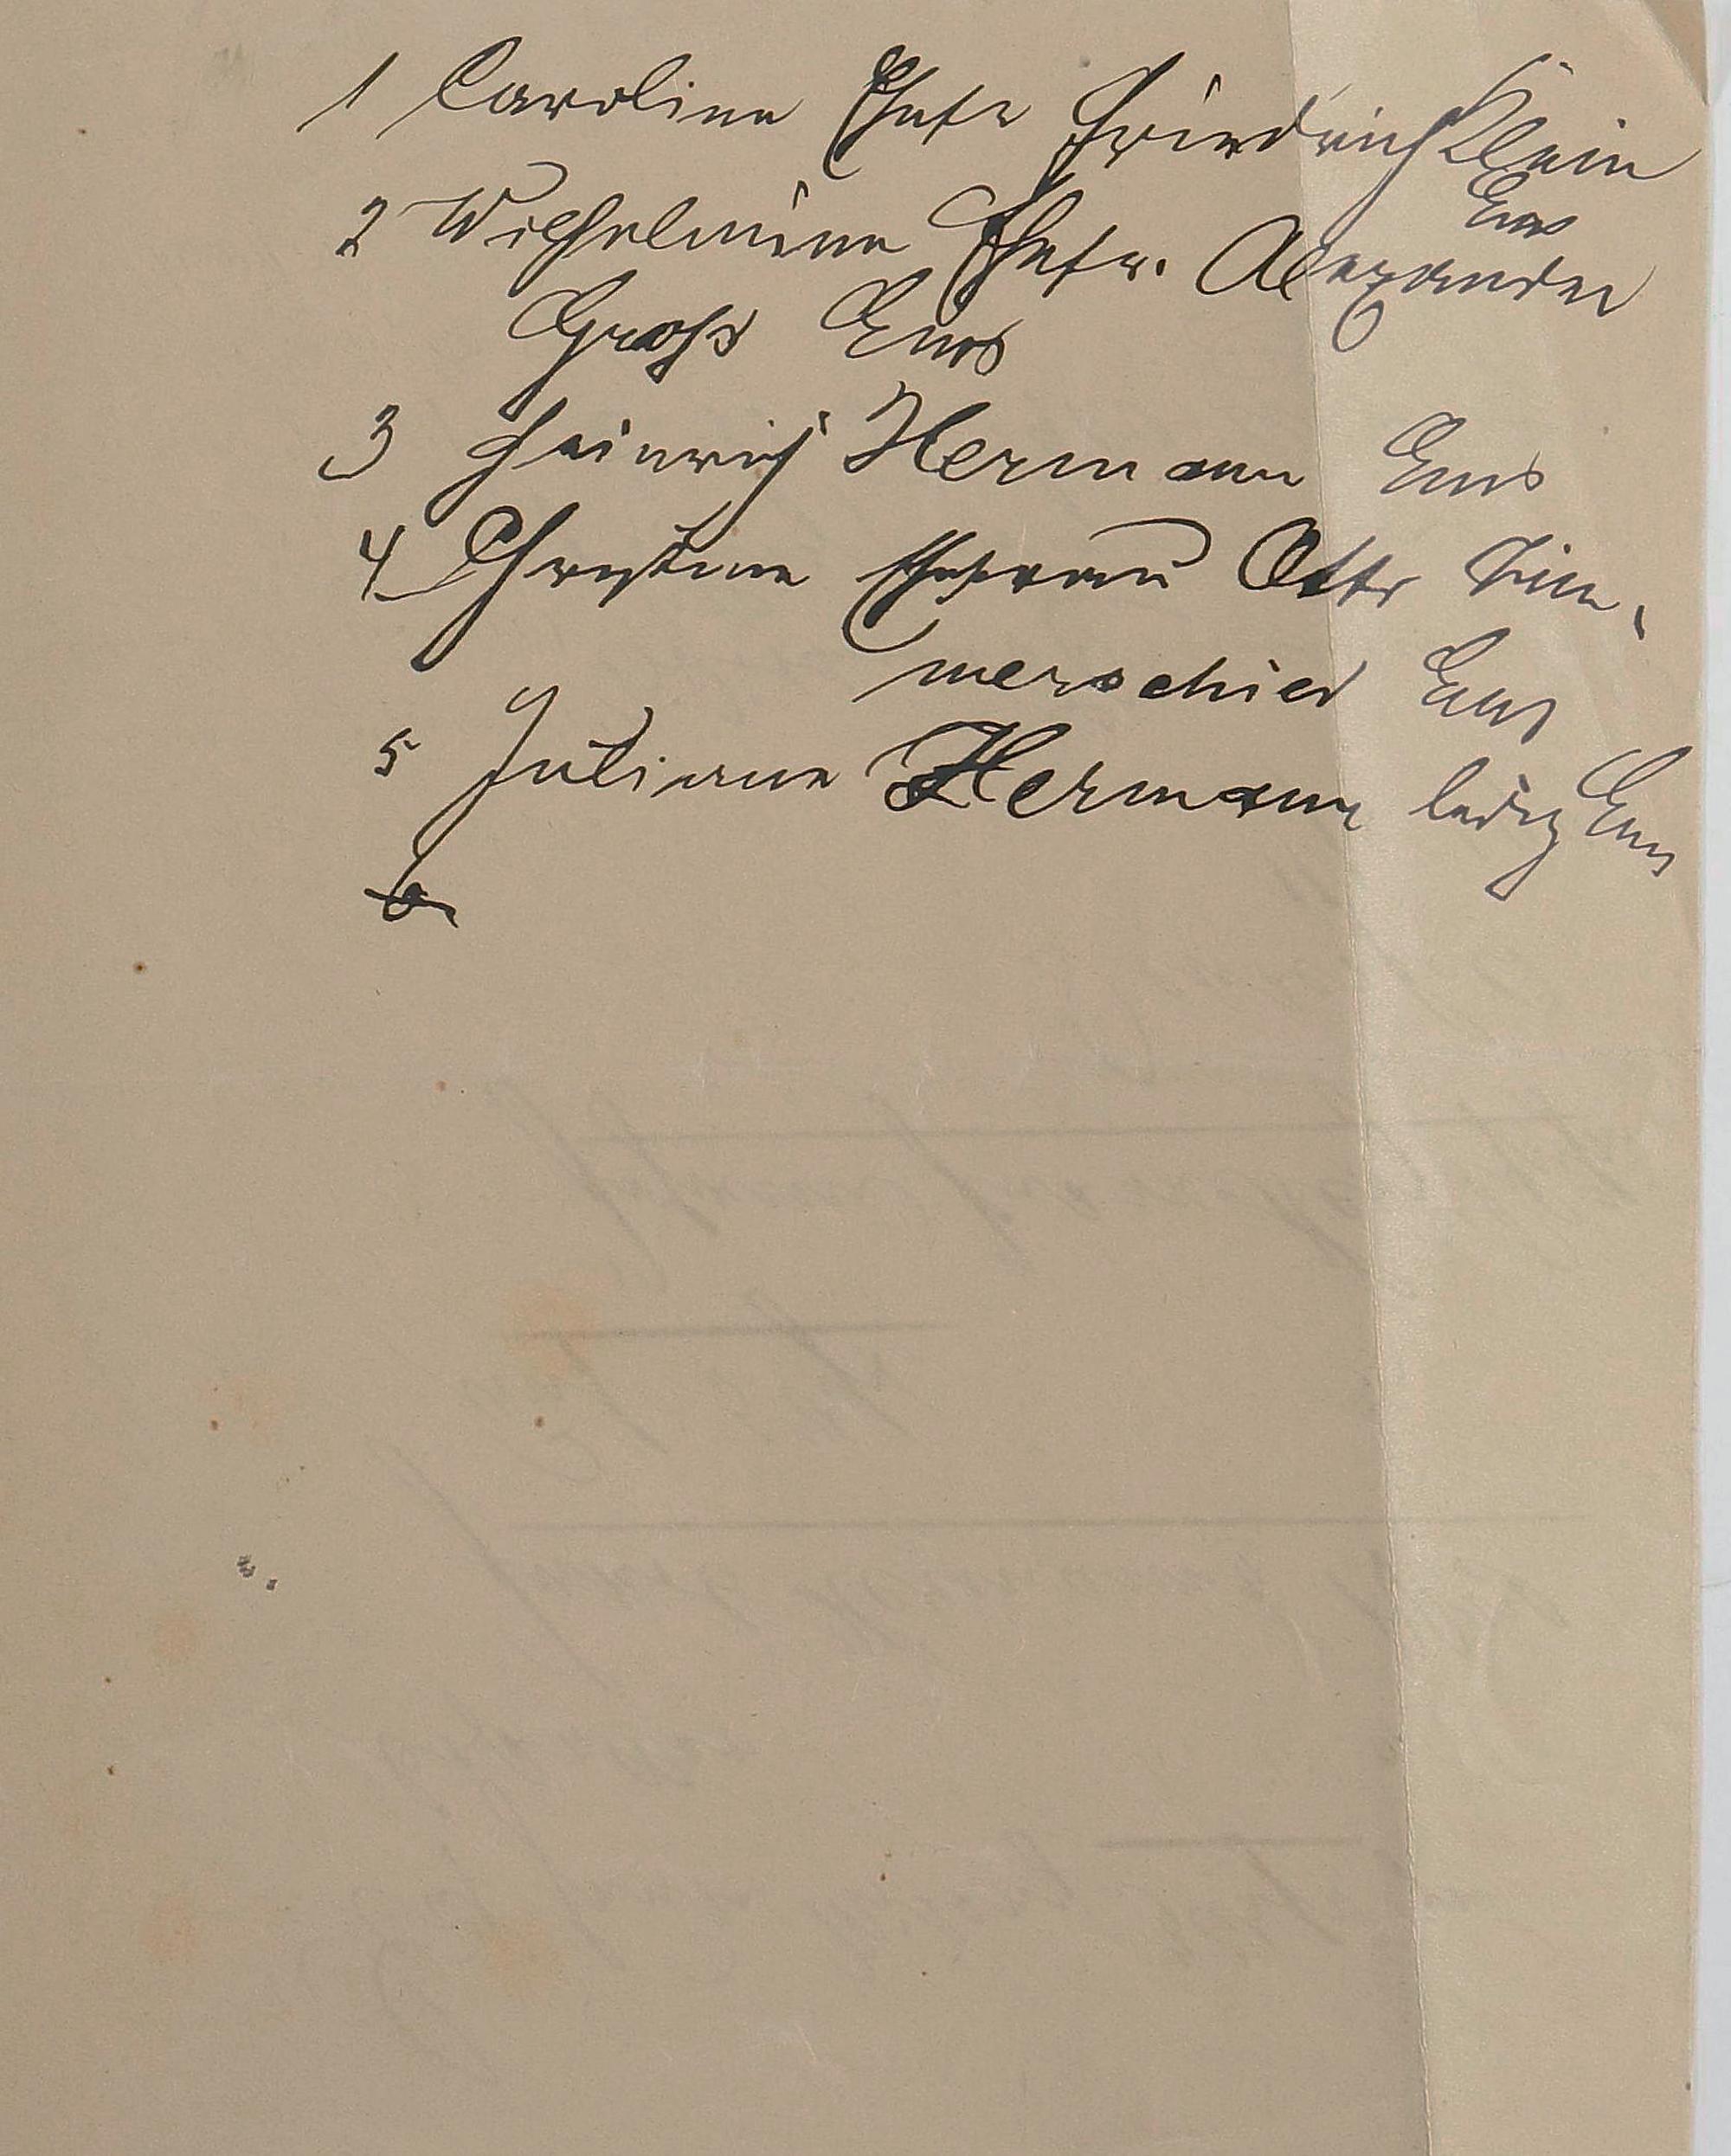 1 Caroline Ehefr Friedrich Klein
Ems
2 Wilhelmine Ehefr. Alexander
Groß Ems
3 Heinrich Hermann Ems
4 Christine Ehefrau Otto
merschied Ems
5 Juliane Hermann ledig Ems